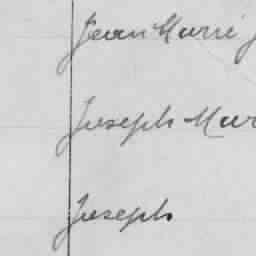 Jean Marie J
Joseph Mar
Joseph